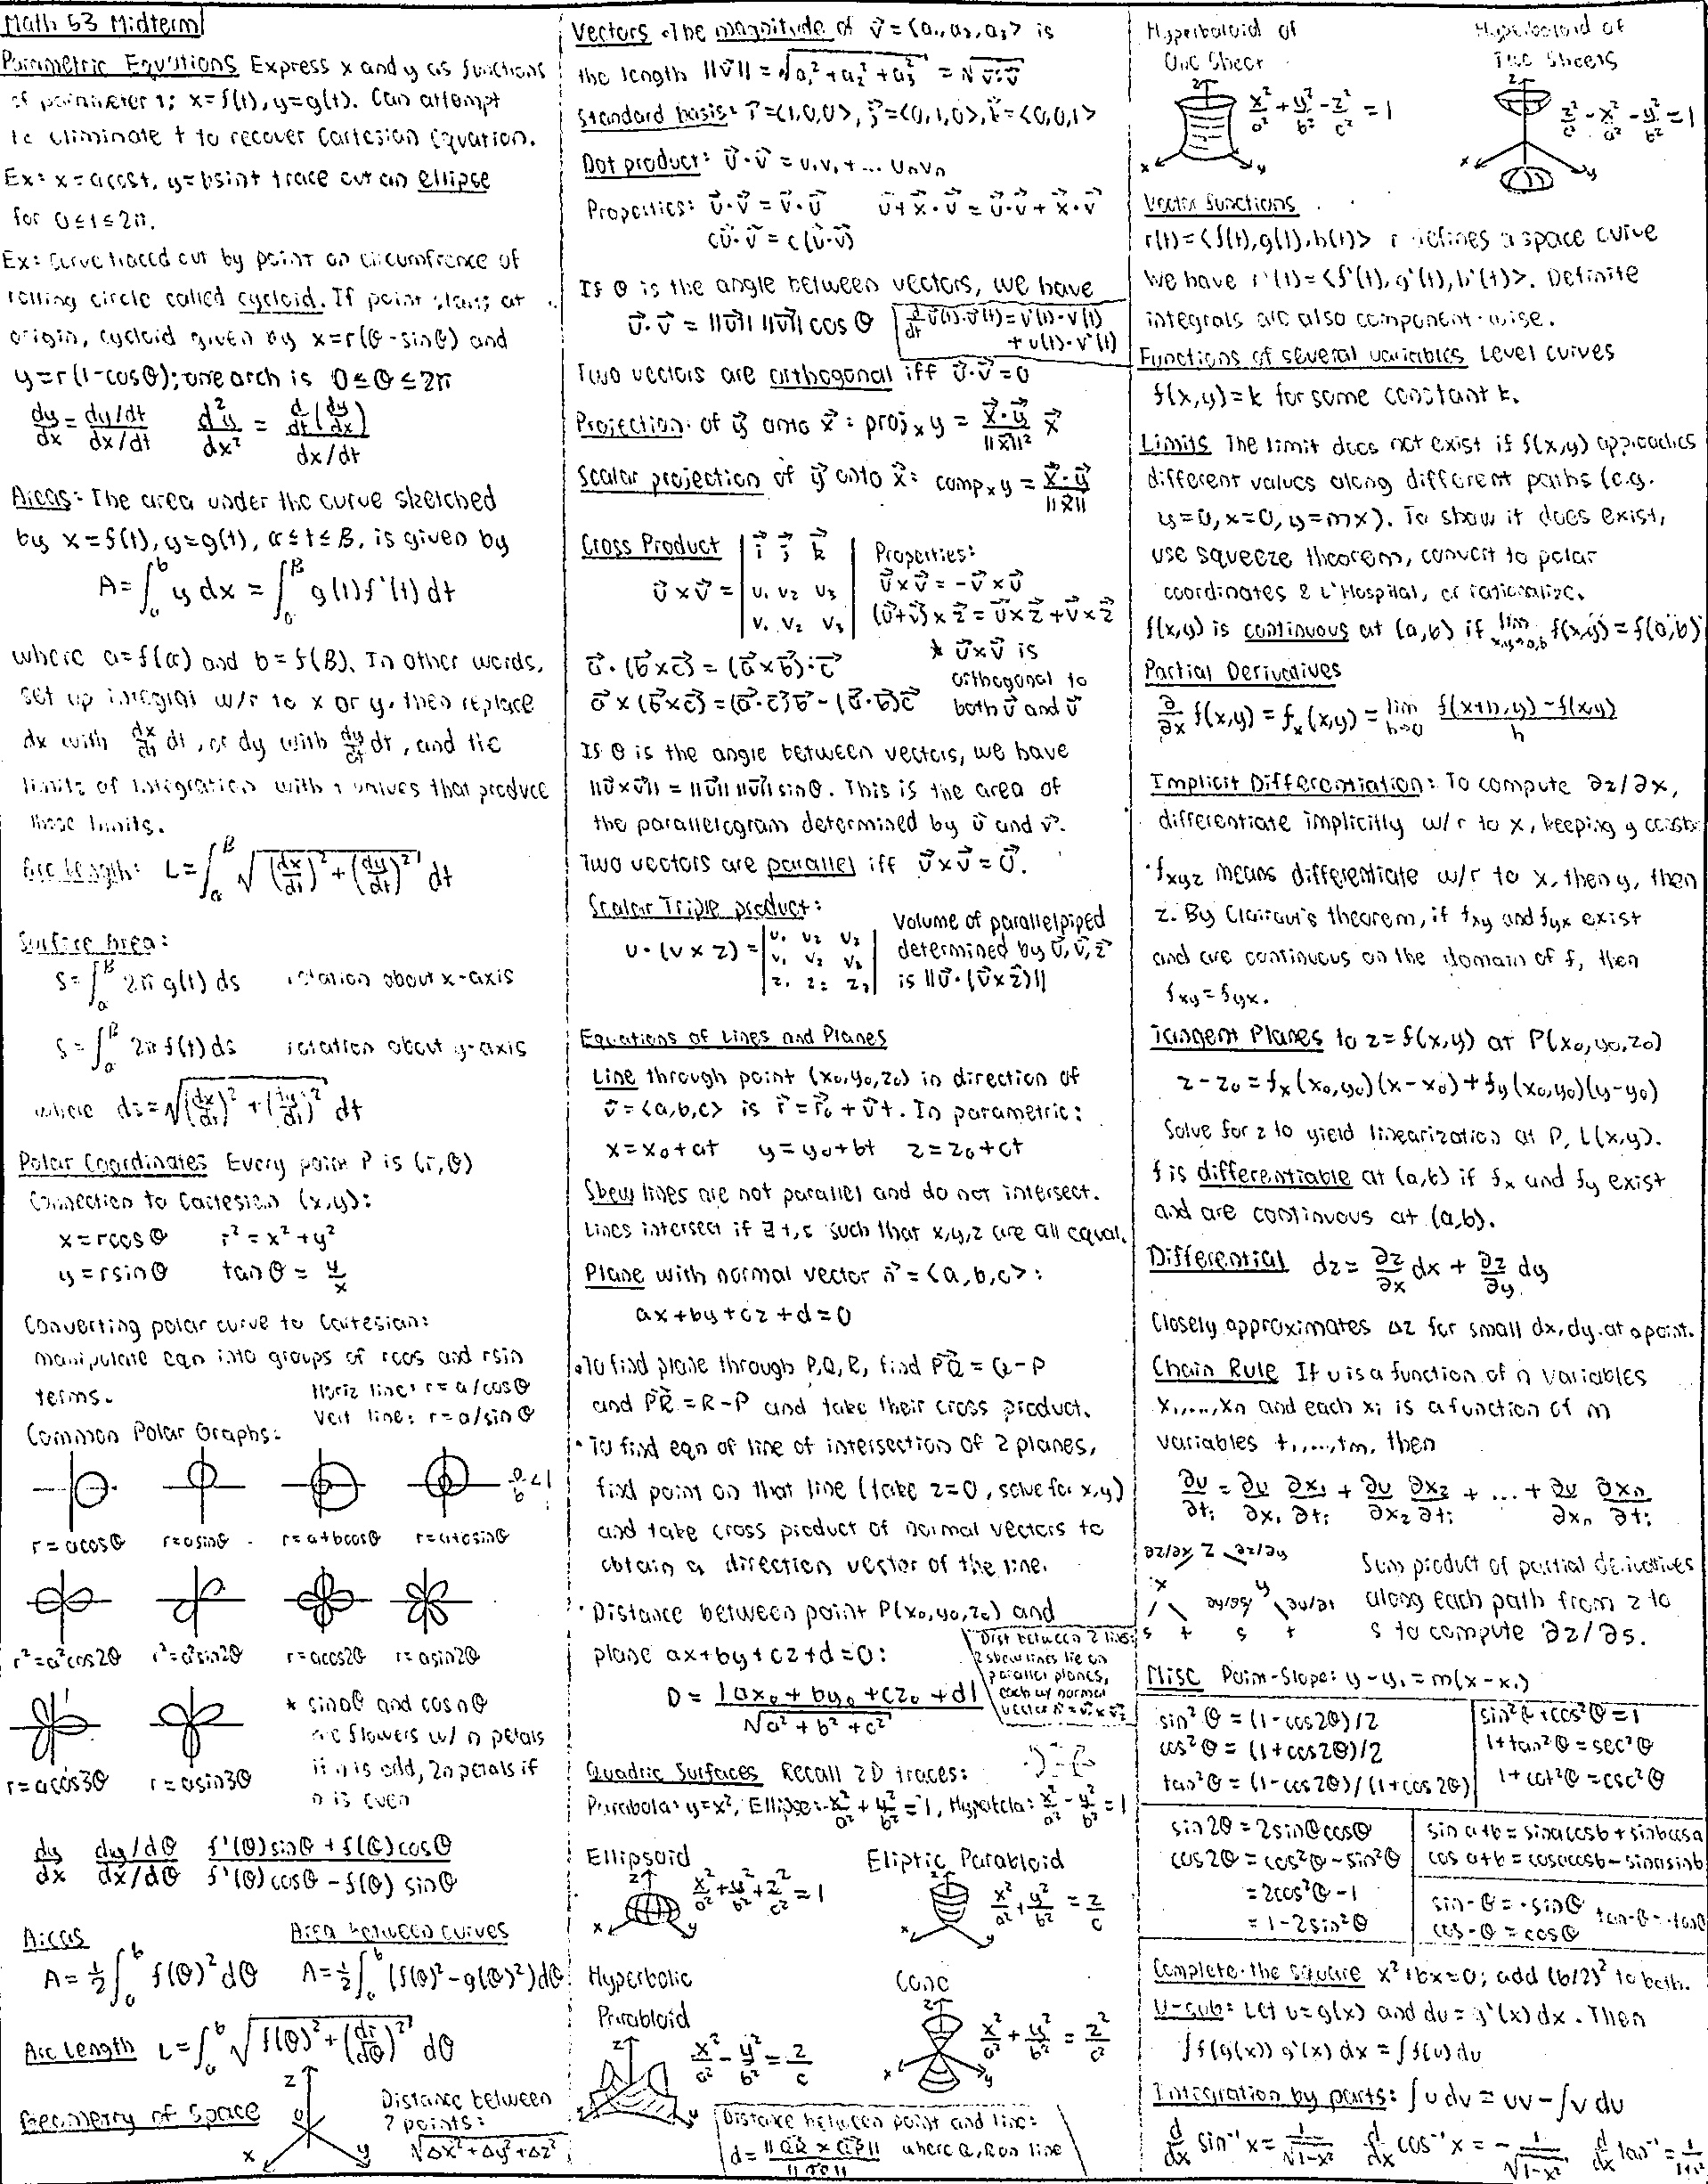 Math 53 Midterm
Parametric Equations Express x and y as functions
of parameter t; x=f(t), y=g(t). Can attempt
to eliminate t to recover Cartesian Equation.
Ex: x=acost, y=bsint trace out an ellipse
for 0≤t≤2π.
Ex: Curve traced out by point on circumfrence of
rolling circle called cycloid. If point starts at
origin, cycloid given by x=r(θ-sinθ) and
y=r(1-cosθ); one arch is 0≤θ≤2π
dy/dx = (dy/dt)/(dx/dt)   d²y/dx² = (d/dt(dy/dx))/(dx/dt)
Areas: The area under the curve sketched
by x=f(t), y=g(t), α≤t≤β, is given by
A=∫_a^b y dx = ∫_α^β g(t)f'(t)dt
where a=f(α) and b=f(β). In other words,
set up integral w/r to x or y, then replace
dx with dx/dt dt, or dy with dy/dt dt, and the
limits of integration with t values that produce
those limits.
Arc Length: L=∫_α^β √((dx/dt)²+(dy/dt)²) dt
Surface Area:
S=∫_α^β 2π g(t) ds   rotation about x-axis
S=∫_α^β 2π f(t) ds   rotation about y-axis
where ds=√((dx/dt)²+(dy/dt)²) dt
Polar Coordinates Every point P is (r,θ)
Connection to Cartesian (x,y):
x=rcosθ   r²=x²+y²
y=rsinθ   tanθ=y/x
Converting polar curve to Cartesian:
manipulate eqn into groups of rcos and rsin
terms.
Horiz line: r=a/cosθ
Vert line: r=a/sinθ
Common Polar Graphs:
a/b<1
r=acosθ   r=asinθ   r=a+bcosθ   r=a+asinθ
r²=a²cos2θ   r²=a²sin2θ   r=acos2θ   r=asin2θ
* sinnθ and cosnθ
are flowers w/ n petals
if n is odd, 2n petals if
n is even
r=acos3θ   r=asin3θ
dy/dx   (dy/dθ)/(dx/dθ)   (f'(θ)sinθ+f(θ)cosθ)/(f'(θ)cosθ-f(θ)sinθ)
Areas   Area between curves
A=½∫_a^b f(θ)²dθ   A=½∫_a^b (f(θ)²-g(θ)²)dθ
Arc Length L=∫_a^b √(f(θ)²+(dr/dθ)²) dθ
Geometry of Space
z
x   y
Distance between
2 points:
√(Δx²+Δy²+Δz²)
Vectors The magnitude of v⃗=<a₁,a₂,a₃> is
the length ||v⃗||=√(a₁²+a₂²+a₃²)=√(v⃗·v⃗)
Standard basis: i⃗=<1,0,0>, j⃗=<0,1,0>, k⃗=<0,0,1>
Dot product: u⃗·v⃗=u₁v₁+...uₙvₙ
Properties: u⃗·v⃗=v⃗·u⃗   u⃗+x⃗·v⃗=u⃗·v⃗+x⃗·v⃗
cu⃗·v⃗=c(u⃗·v⃗)
If θ is the angle between vectors, we have
u⃗·v⃗=||u⃗|| ||v⃗||cosθ
d/dt u⃗(t)·v⃗(t)=u'(t)·v(t)
+u(t)·v'(t)
Two vectors are orthogonal iff u⃗·v⃗=0
Projection of y⃗ onto x⃗: projₓy=(x⃗·y⃗/||x⃗||²) x⃗
Scalar projection of y⃗ onto x⃗: compₓy=x⃗·y⃗/||x⃗||
Cross Product
u⃗×v⃗ = | i⃗ j⃗ k⃗ |
| u₁ u₂ u₃ |
| v₁ v₂ v₃ |
Properties:
u⃗×v⃗=-v⃗×u⃗
(u⃗+v⃗)×z⃗=u⃗×z⃗+v⃗×z⃗
a⃗·(b⃗×c⃗)=(a⃗×b⃗)·c⃗
a⃗×(b⃗×c⃗)=(a⃗·c⃗)b⃗-(a⃗·b⃗)c⃗
* u⃗×v⃗ is
orthogonal to
both u⃗ and v⃗
If θ is the angle between vectors, we have
||u⃗×v⃗||=||u⃗|| ||v⃗||sinθ. This is the area of
the parallelogram determined by u⃗ and v⃗.
Two vectors are parallel iff u⃗×v⃗=0⃗.
Scalar Triple product:
u·(v×z) = | u₁ u₂ u₃ |
| v₁ v₂ v₃ |
| z₁ z₂ z₃ |
Volume of parallelpiped
determined by u⃗,v⃗,z⃗
is ||u⃗·(v⃗×z⃗)||
Equations of Lines and Planes
Line through point (x₀,y₀,z₀) in direction of
v⃗=<a,b,c> is r⃗=r⃗₀+v⃗t. In parametric:
x=x₀+at   y=y₀+bt   z=z₀+ct
Skew lines are not parallel and do not intersect.
Lines intersect if ∃ t,s such that x,y,z are all equal.
Plane with normal vector n⃗=<a,b,c>:
ax+by+cz+d=0
•To find plane through P,Q,R, find PQ⃗=Q-P
and PR⃗=R-P and take their cross product.
• To find eqn of line of intersection of 2 planes,
find point on that line (take z=0, solve for x,y)
and take cross product of normal vectors to
obtain a direction vector of the line.
• Distance between point P(x₀,y₀,z₀) and
plane ax+by+cz+d=0:
D=|ax₀+by₀+cz₀+d|/√(a²+b²+c²)
Dist between 2 lines:
2 skew lines lie on
parallel planes,
each w/ normal
vector n⃗=v⃗₁×v⃗₂
Quadric Surfaces Recall 2D traces:
Parabola: y=x², Ellipse: x²/a²+y²/b²=1, Hyperbola: x²/a²-y²/b²=1
Ellipsoid   Eliptic Parabloid
z   x²/a²+y²/b²+z²/c²=1   x²/a²+y²/b²=z/c
x   y
Hyperbolic   Cone
Parabloid
z   x²/a²-y²/b²=z/c   z   x²/a²+y²/b²=z²/c²
x   y   x   y
Distance between point and line:
d=||QR⃗×QP⃗||/||QR⃗|| where Q,R on line
Hyperboloid of   Hyperboloid of
One Sheet   Two Sheets
z   x²/a²+y²/b²-z²/c²=1   z   z²/c²-x²/a²-y²/b²=1
x   y   x   y
Vector functions
r(t)=<f(t),g(t),h(t)> r defines a space curve
We have r'(t)=<f'(t),g'(t),h'(t)>. Definite
integrals are also component-wise.
Functions of several variables Level curves
f(x,y)=k for some constant k.
Limits The limit does not exist if f(x,y) approaches
different values along different paths (e.g.
y=0, x=0, y=mx). To show it does exist,
use squeeze theorem, convert to polar
coordinates & L'Hospital, or rationalize.
f(x,y) is continuous at (a,b) if lim_{x,y→a,b} f(x,y)=f(a,b)
Partial Derivatives
∂/∂x f(x,y)=fₓ(x,y)=lim_{h→0} (f(x+h,y)-f(x,y))/h
Implicit Differentiation: To compute ∂z/∂x,
differentiate implicitly w/r to x, keeping y const
• f_xyz means differentiate w/r to x, then y, then
z. By Clairaut's theorem, if f_xy and f_yx exist
and are continuous on the domain of f, then
f_xy=f_yx.
Tangent Planes to z=f(x,y) at P(x₀,y₀,z₀)
z-z₀=f_x(x₀,y₀)(x-x₀)+f_y(x₀,y₀)(y-y₀)
Solve for z to yield linearization at P, L(x,y).
f is differentiable at (a,b) if f_x and f_y exist
and are continuous at (a,b).
Differential dz=∂z/∂x dx+∂z/∂y dy
Closely approximates Δz for small dx,dy at a point.
Chain Rule If u is a function of n variables
x₁,...,xₙ and each xᵢ is a function of m
variables t₁,...,tₘ, then
∂u/∂tᵢ=∂u/∂x₁ ∂x₁/∂tᵢ+∂u/∂x₂ ∂x₂/∂tᵢ+...+∂u/∂xₙ ∂xₙ/∂tᵢ
∂z/∂x z ∂z/∂y
x   y
∂y/∂s   ∂y/∂t
s t s t
Sum product of partial derivatives
along each path from z to
s to compute ∂z/∂s.
Misc Point-Slope: y-y₁=m(x-x₁)
sin²θ=(1-cos2θ)/2
cos²θ=(1+cos2θ)/2
tan²θ=(1-cos2θ)/(1+cos2θ)
sin²θ+cos²θ=1
1+tan²θ=sec²θ
1+cot²θ=csc²θ
sin2θ=2sinθcosθ
cos2θ=cos²θ-sin²θ
=2cos²θ-1
=1-2sin²θ
sin a+b=sinacosb+sinbcosa
cos a+b=cosacosb-sinasinb
sin-θ=-sinθ   tan-θ=-tanθ
cos-θ=cosθ
Complete the square x²+bx=0; add (b/2)² to both.
U-sub: Let u=g(x) and du=g'(x)dx. Then
∫f(g(x))g'(x)dx=∫f(u)du
Integration by parts: ∫u dv=uv-∫v du
d/dx sin⁻¹x=1/√(1-x²)   d/dx cos⁻¹x=-1/√(1-x²)   d/dx tan⁻¹=1/(1+x²)